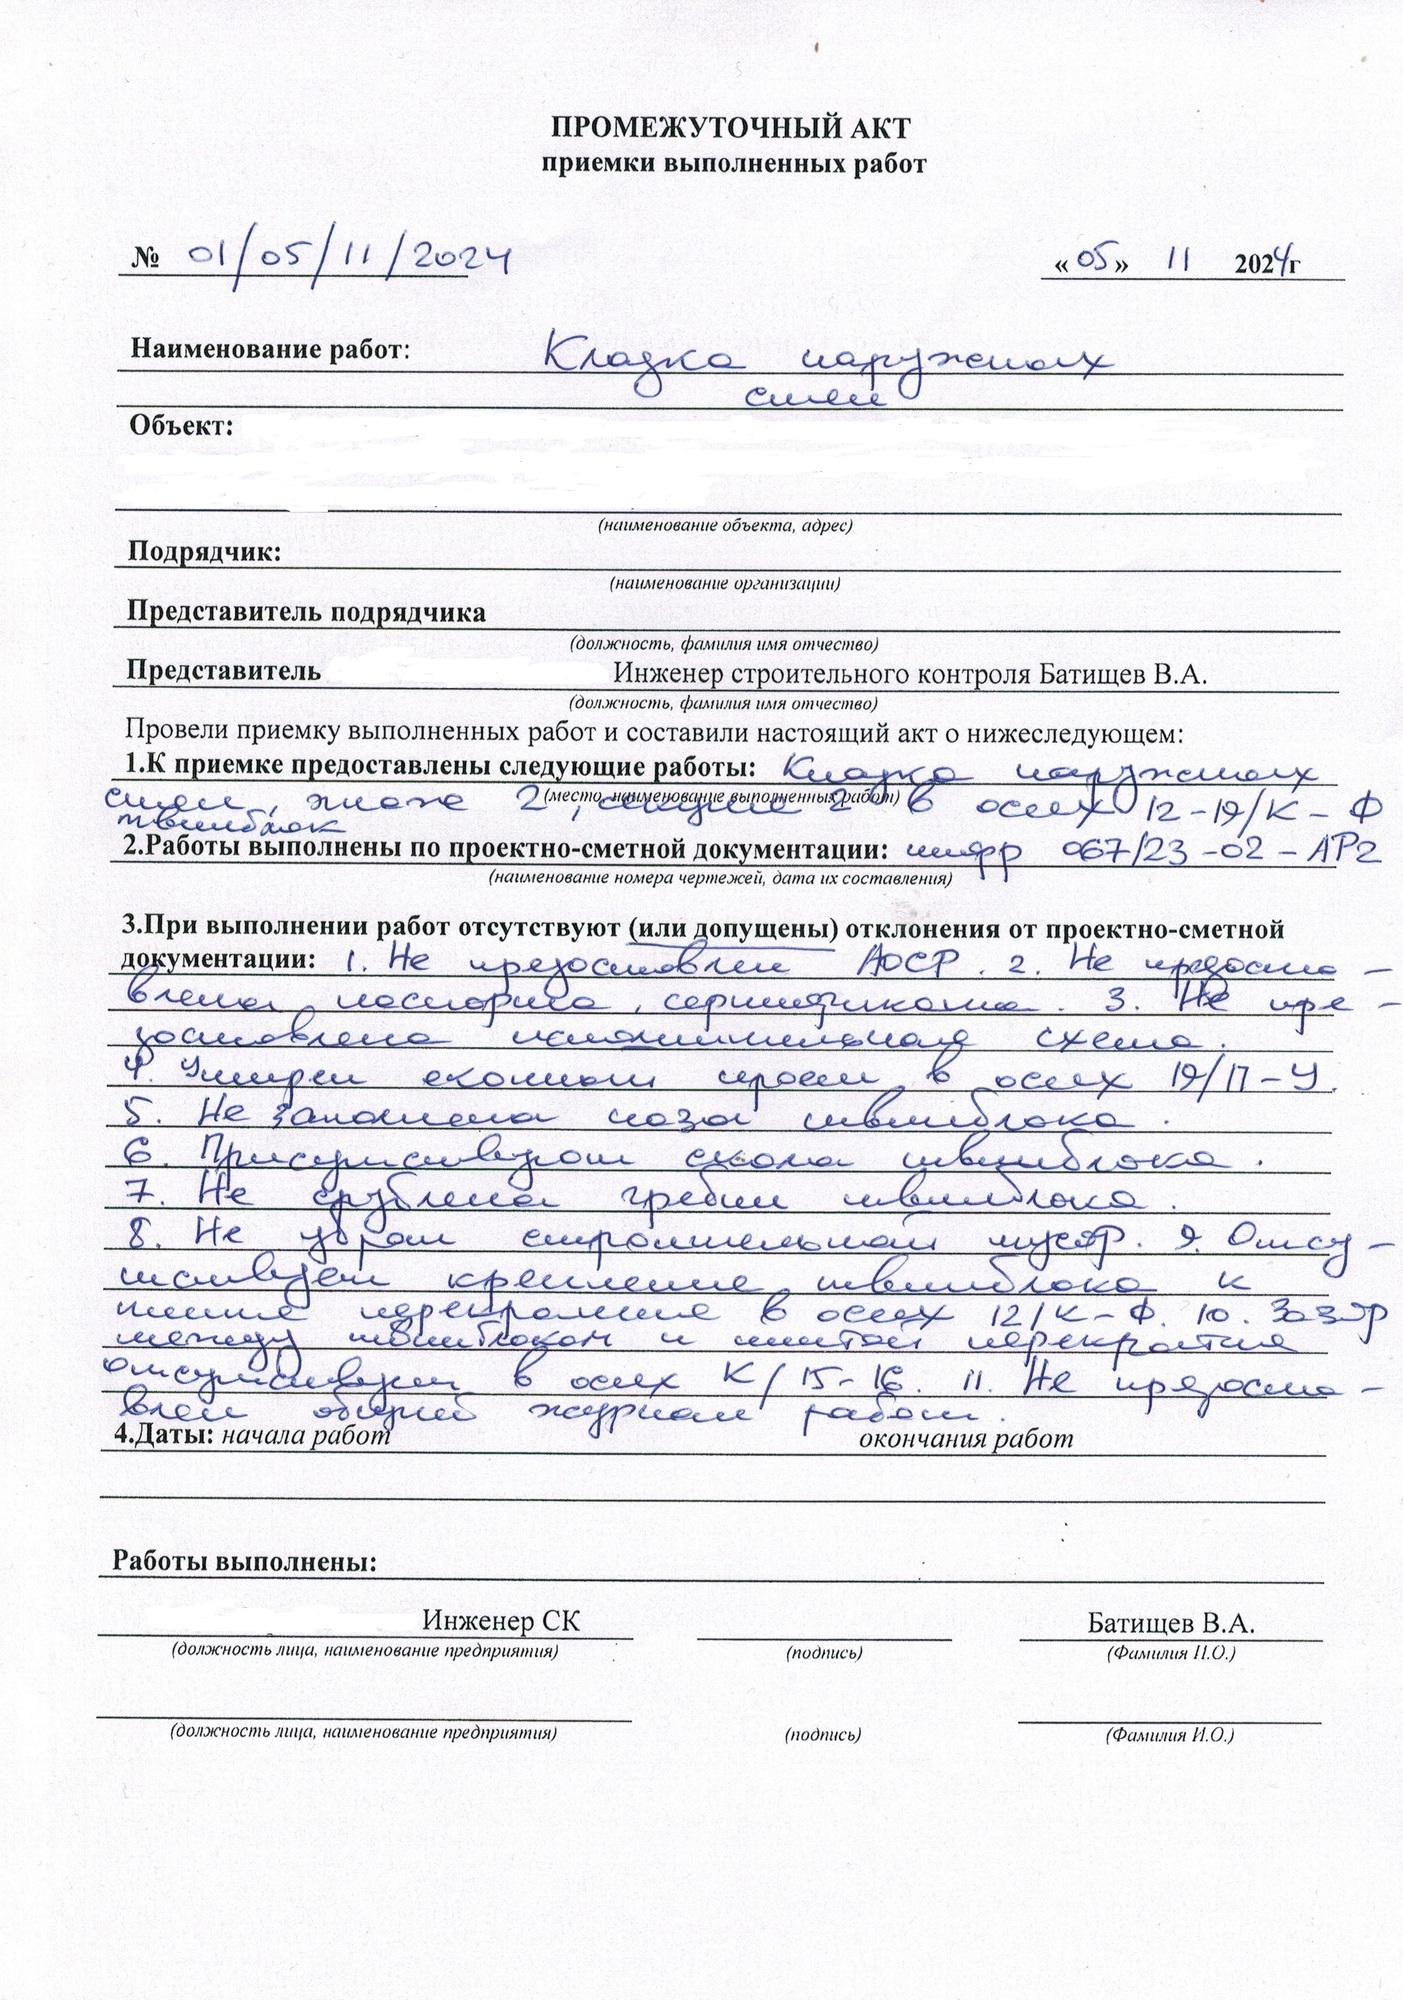 ПРОМЕЖУТОЧНЫЙ АКТ
приемки выполненных работ
№ 01/05/11/2024 « 05 » 11 2024г
Наименование работ: Кладка наружных
стен
Объект:
(наименование объекта, адрес)
Подрядчик:
(наименование организации)
Представитель подрядчика
(должность, фамилия имя отчество)
Представитель Инженер строительного контроля Батищев В.А.
(должность, фамилия имя отчество)
Провели приемку выполненных работ и составили настоящий акт о нижеследующем:
1.К приемке предоставлены следующие работы: Кладка наружных
(место, наименование выполненных работ)
стен, этаж 2, секция 2 в осях 12-19/К-Ф
твинблок
2.Работы выполнены по проектно-сметной документации: шифр 067/23-02-АР2
(наименование номера чертежей, дата их составления)
3.При выполнении работ отсутствуют (или допущены) отклонения от проектно-сметной
документации: 1. Не предоставлен АОСР. 2. Не предоста-
влены паспорта, сертификаты. 3. Не пре-
доставлена исполнительная схема.
4. оконный проем в осях 19/П-У.
5. Не заполнены пазы твинблока.
6. Присутствуют сколы твинблока.
7. Не срублены гребни твинблока.
8. Не убран строительный мусор. 9. Отсу-
тствует крепление твинблока к
плите перекрытия в осях 12/К-Ф. 10. Зазор
между твинблоком и плитой перекрытия
отсутствует в осях К/15-16. 11. Не предоста-
влен общий журнал работ.
4.Даты: начала работ окончания работ
Работы выполнены:
Инженер СК Батищев В.А.
(должность лица, наименование предприятия) (подпись) (Фамилия И.О.)
(должность лица, наименование предприятия) (подпись) (Фамилия И.О.)